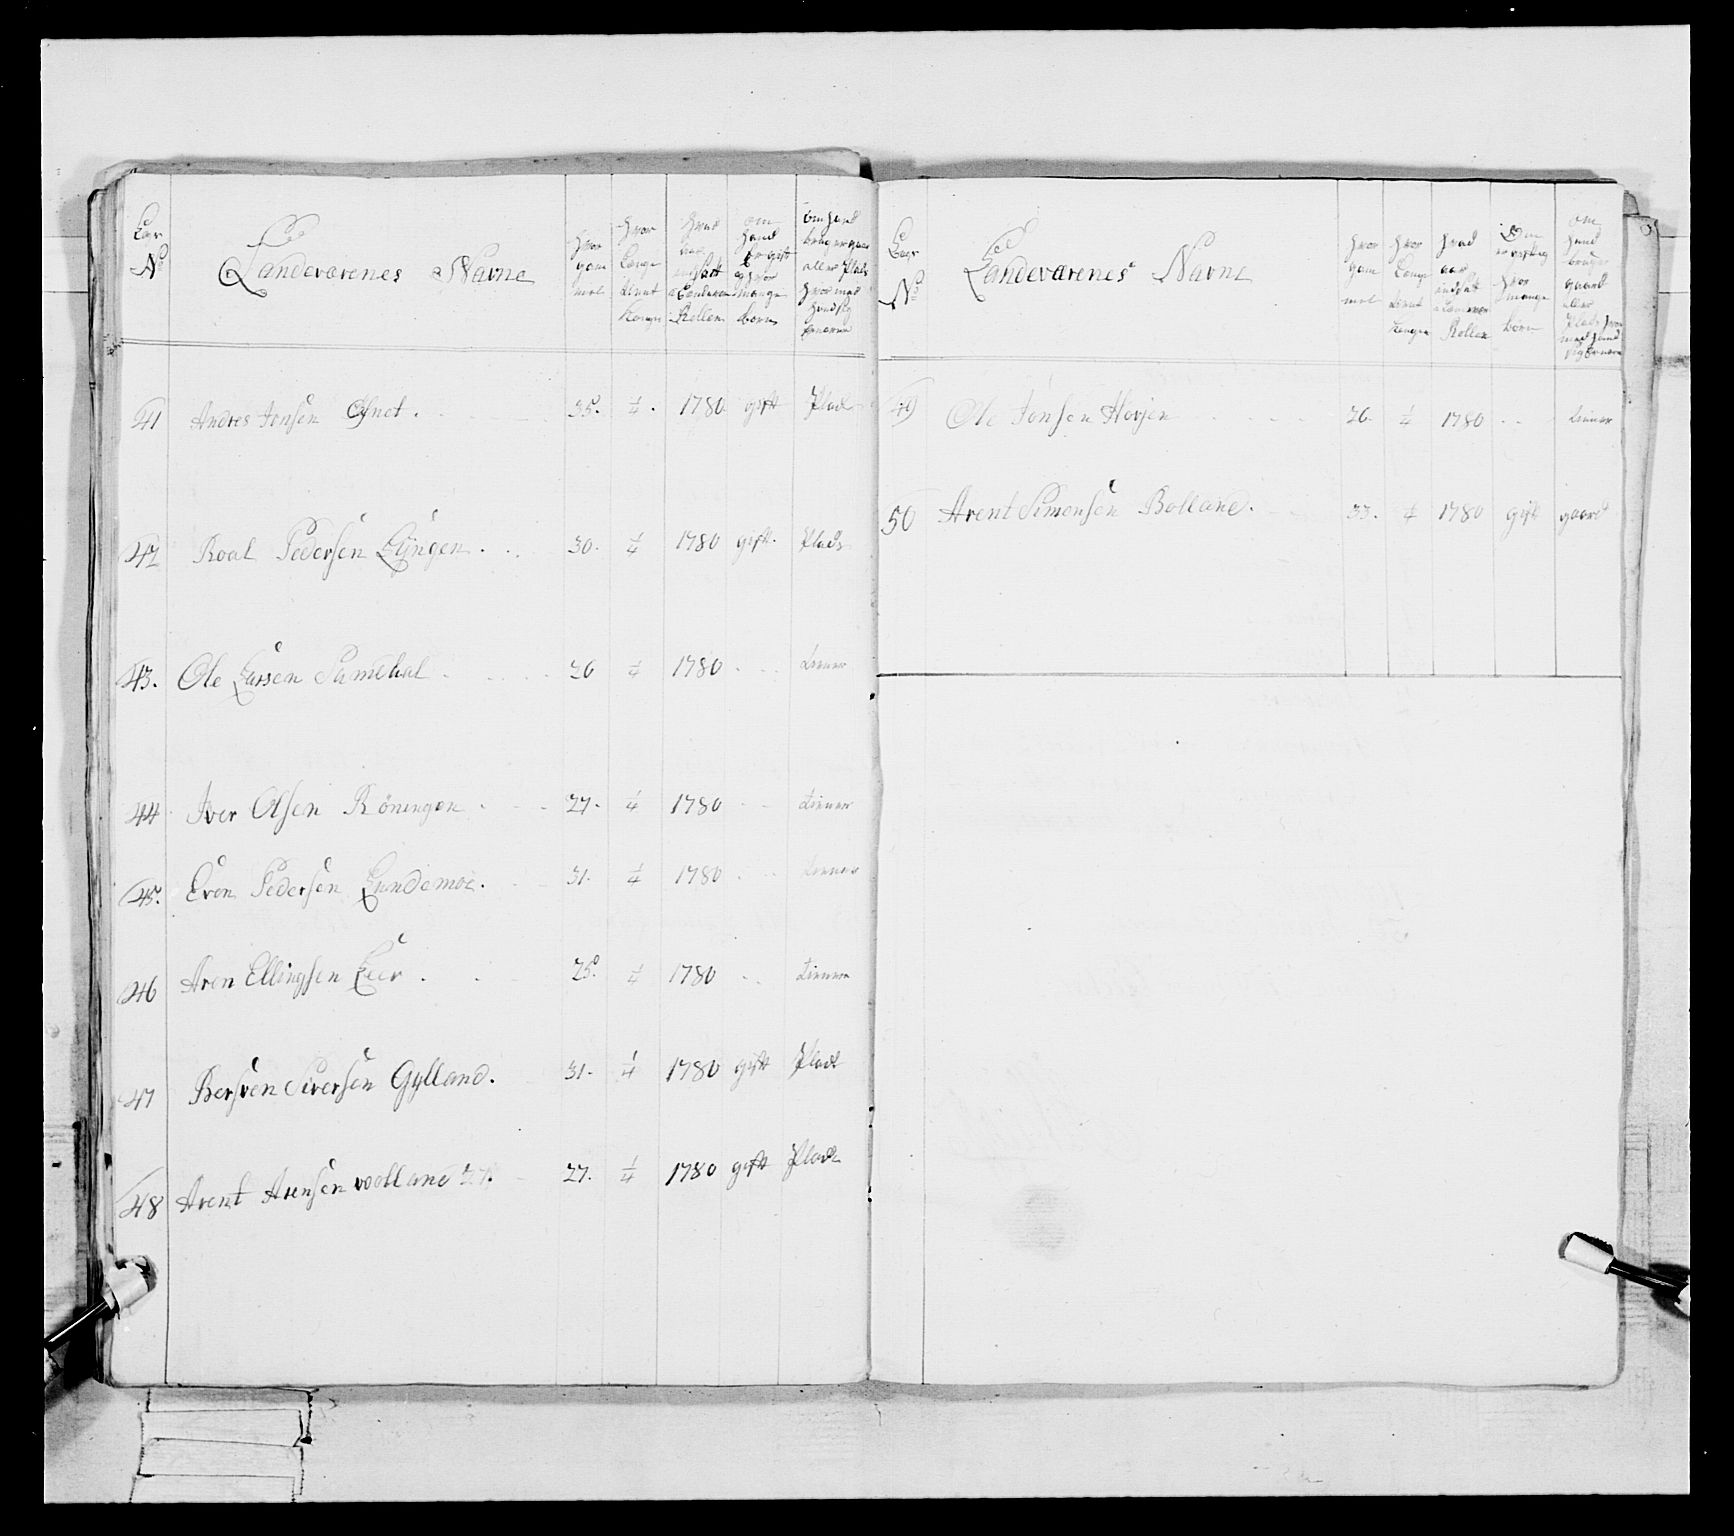 Lægs No Landeværenes Navne hvor gam mel hvor Længe tient Kongen hvad aar indsatt i Landevær Rollen om hand er gift og hvor mange börn om hand bruger gaar eller Plads hvor med hand sig ernærer
41 Andres Jonsen 35. 1/4. 1780 gift Plads
42 Roal Pedersen Lÿngen. 30. 1/4 1780 gift. Plads
43. Ole Larsen 26 1/4 1780 tiener
44 Iver Olsen Röningen 27. 1/4 1780 tiener
45. Even Pedersen Lundemoe. 31. 1/4 1780 tiener
46 Aren Ellingsen Leer 25. 1/4 1780 tiener
47 Bersven Siversen Gylland. 31. 1/4 1780 gift Plads
48 Arent Arensen wolland 27. 27. 1/4 1780 gift Plads
Lægs No Landeværenes Navne hvor gam mel hvor Længe tient Kongen hvad aar indsat i Landevær Rollen Om er gift og hvor mange börn om hand bruger gaard eller Plads hvor med hand sig ernære
49 Ole Jonsen Hovjen 26. 1/4 1780 tiener
50 Arent Simonsen Bolland. 33. 1/4 1780 gift gaard